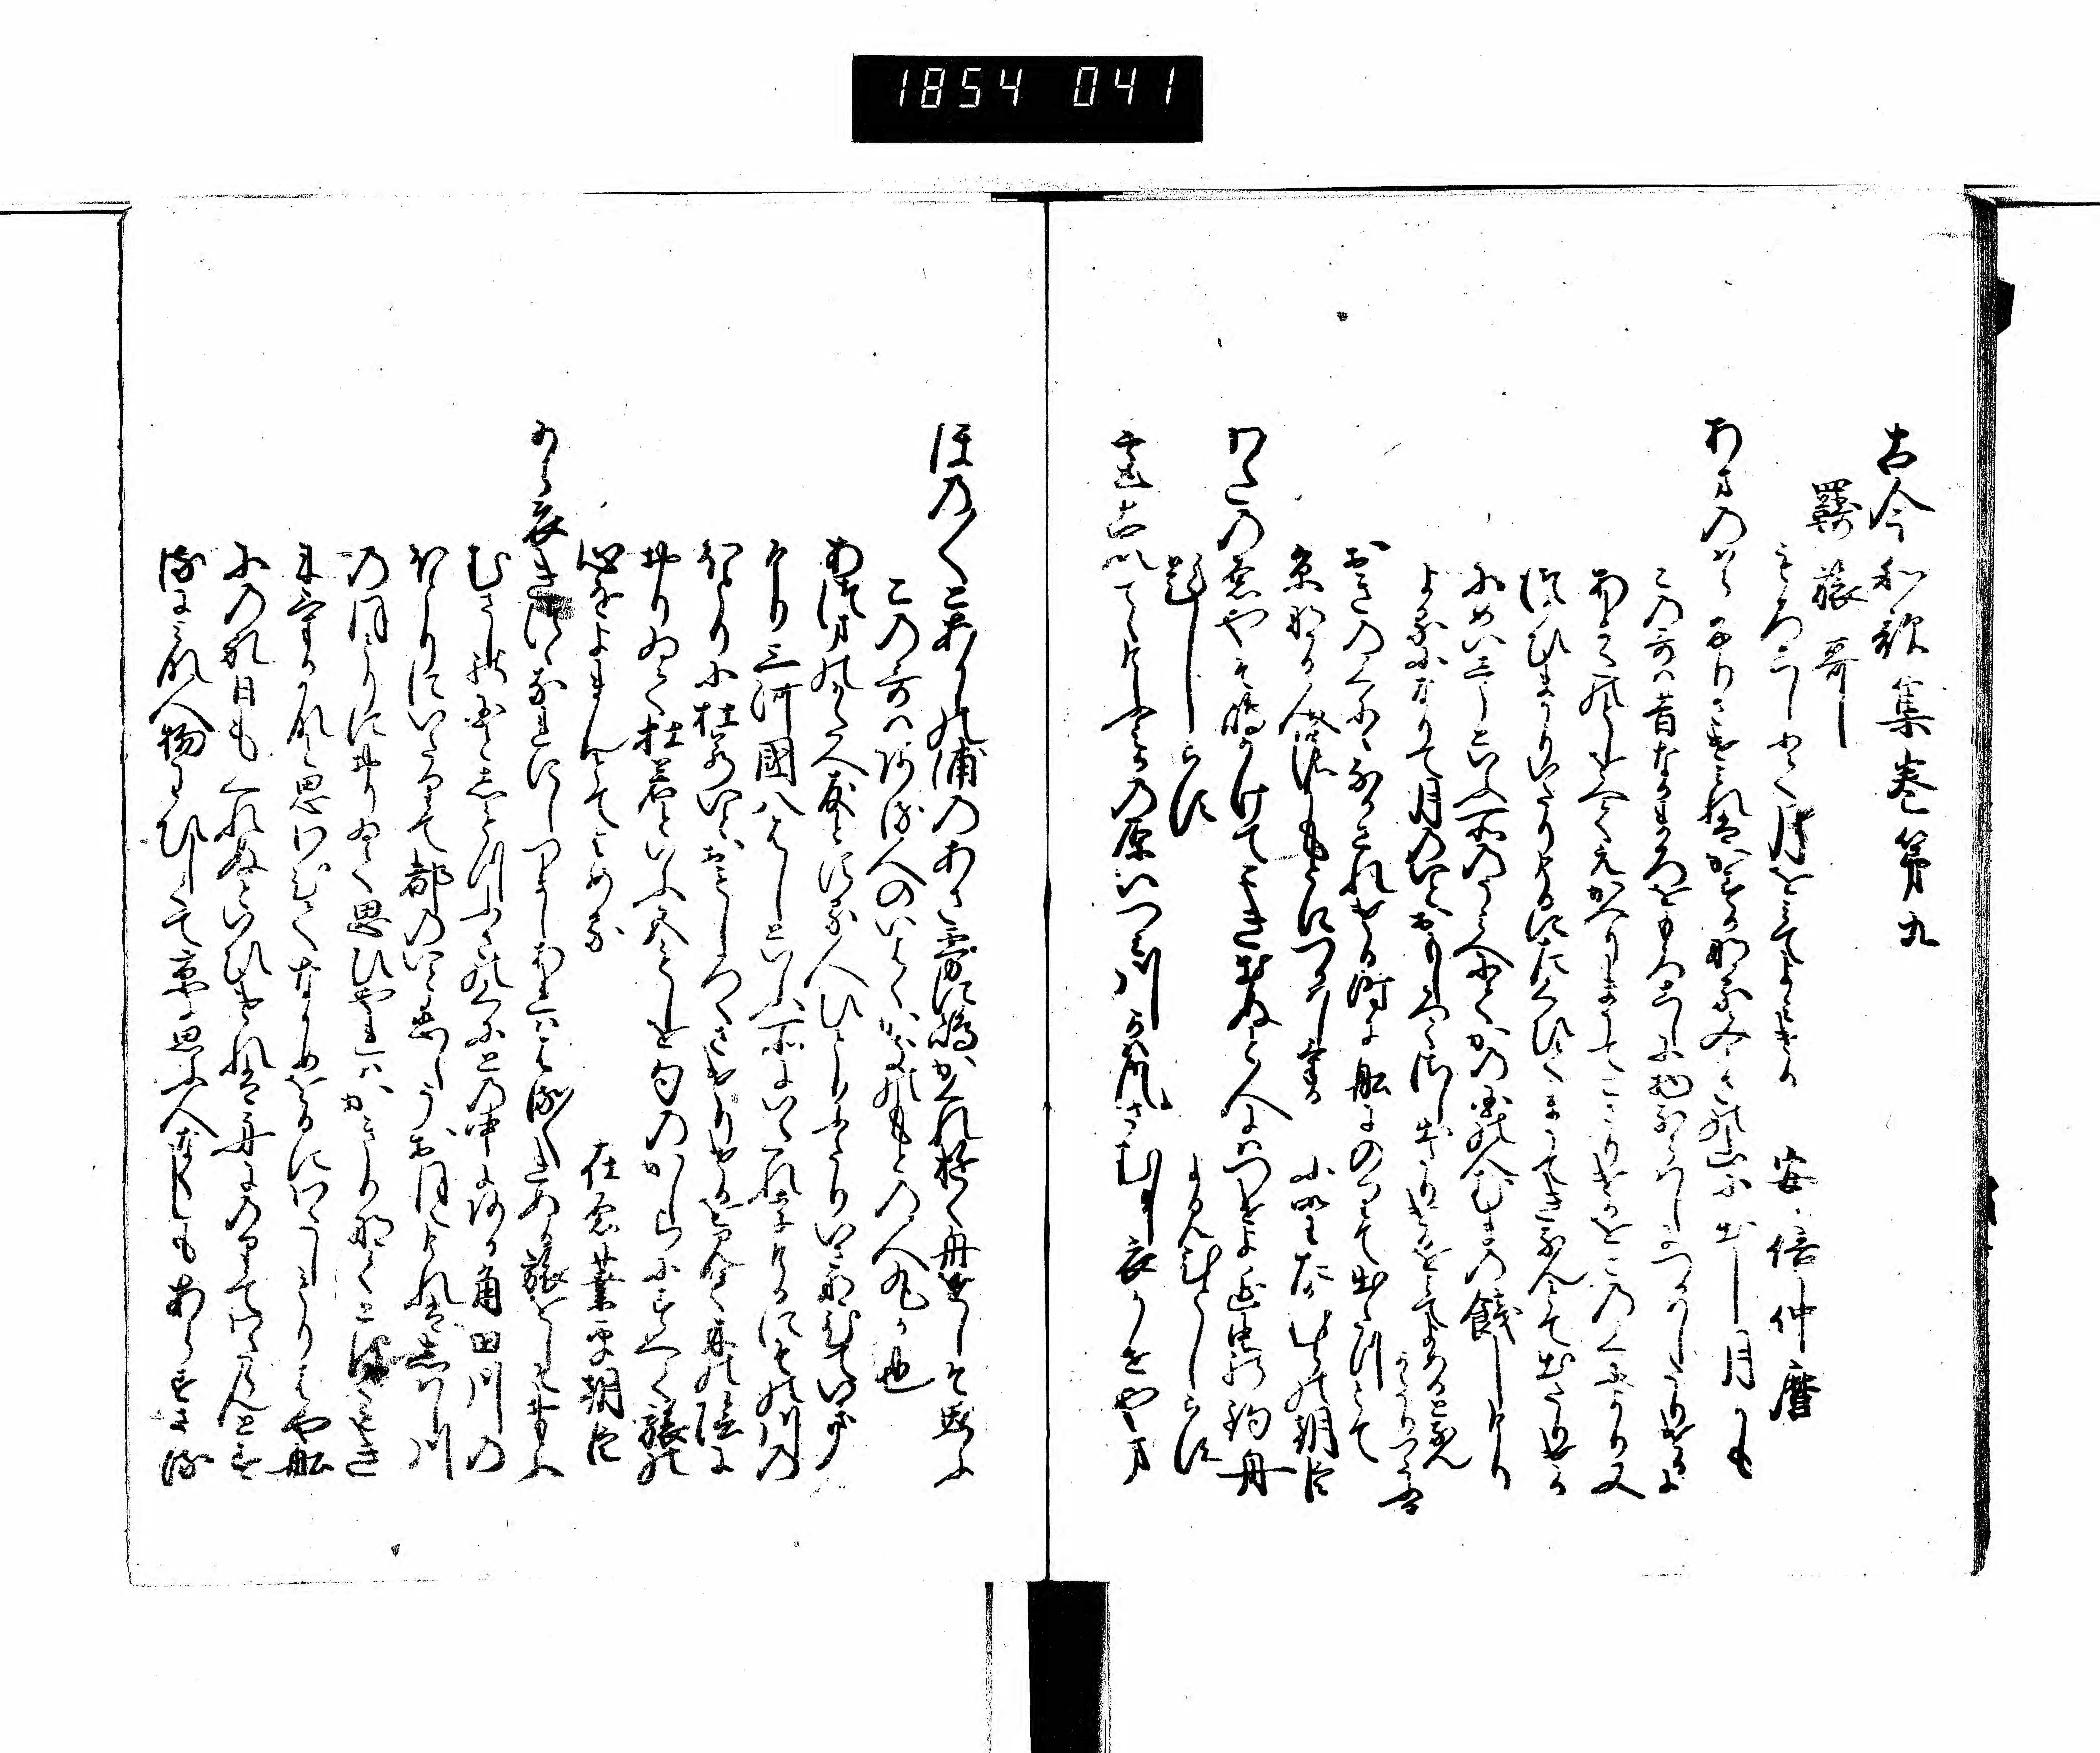 1854 041
古今和歌集巻第九
羇旅哥
もろこしにて月を見てよみける 安倍仲麿
あまの原ふりさけみれはかすかなるみかさの山に出し月かも
この哥は昔なかまろをもろこしに物ならはしにつかはしたりけるに
あまたの年をへてえかへりまうてこさりけるをこのくにより又
つかひまかりいたりけるにたくひてまうてきなんとて出たりける
にめいしうといふ所のうみへにてかの国の人むまの餞しけり
よるになりて月のいとおもしろくさし出たりけるを見てよめるとなん
かたりつたふ
おきのくにになかされける時に舩にのりて出たつとて
京なる人のもとにつかはしける 小野たかむらの朝臣
わたの原やそ嶋かけてこき出ぬと人にはつけよ海士の釣舟
題しらす よみ人しらす
都出てけふみかの原いつみ川かは風さむし衣かせやま
ほの〱とあかしの浦のあさ霧に嶋かくれ行舟をしそ思ふ
この哥はある人のいはく柿のもとの人丸か也
あつまの方へ友とする人ひとりふたりいさなひていき
けり三河國八はしといふ所にいたれりけるにその川の
ほとりに杜若いとおもしろくさけりけるを見て木の陰に
おりゐて杜若といふ五もしを句のかしらにすへて旅の
心をよまんとてよめる 在原業平朝臣
から衣きつゝなれにしつましあれははる〱きぬる旅をしそ思ふ
むさしの国としもつふさの国との中にある角田川の
ほとりにいたりて都のいと恋しうおほえけれはしはし川
のほとりにおりゐて思ひやれはかきりなくとほくもき
にけるかなと思ひわひてなかめをるにわたしもりはや舩
にのれ日もくれぬといひけれは舟にのりてわたらんとす
るにみな人物わひしくて京に思ふ人なくしもあらすさる